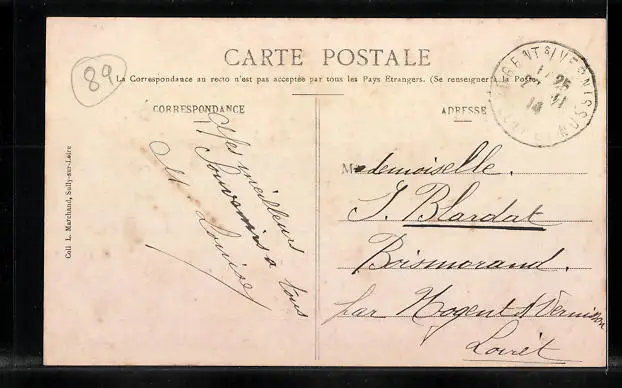 89
CARTE POSTALE
La Correspondance au recto n'est pas acceptée par tous les Pays Etrangers. (Se renseigner à la Poste)
CORRESPONDANCE
Mes meilleurs
Souvenirs à tous
Louise
Coll L. Marchand, Sully-sur-Loire
ADRESSE
Mademoiselle.
J. Blardat
Boismorand.
par Nogent s/ Vernisson
Loiret
NOGENT S/ VERNISSON
25
14